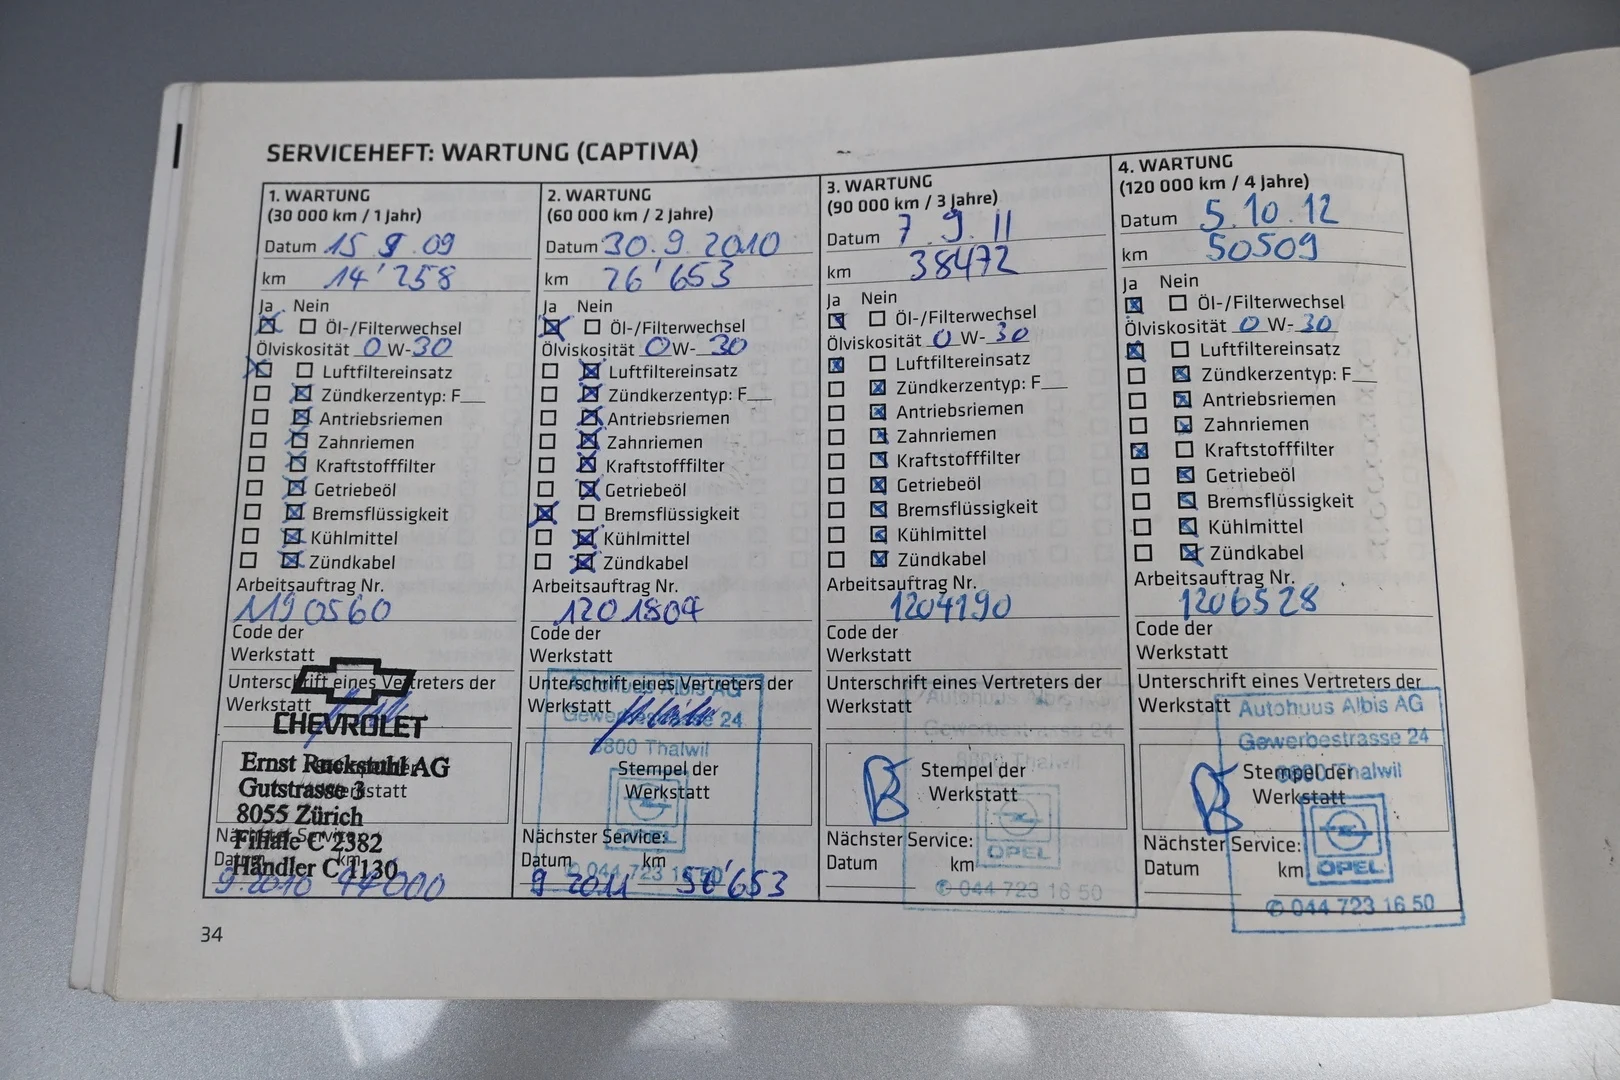 SERVICEHEFT: WARTUNG (CAPTIVA)
1. WARTUNG
(30 000 km / 1 Jahr)
Datum 15 9 .09
km 14'258
Ja Nein
Öl-/Filterwechsel
Ölviskosität 0 W-30
Luftfiltereinsatz
Zündkerzentyp: F
Antriebsriemen
Zahnriemen
Kraftstofffilter
Getriebeöl
Bremsflüssigkeit
Kühlmittel
Zündkabel
Arbeitsauftrag Nr.
1190560
Code der
Werkstatt
Unterschrift eines Vertreters der
Werkstatt
CHEVROLET
Ernst Ruckstuhl AG
Gutstrasse 3
Werkstatt
8055 Zürich
Nächster Service:
Filiale C 2382
Datum km
Händler C 1130
9.2010 44'000
2. WARTUNG
(60 000 km / 2 Jahre)
Datum 30.9.2010
km 26'653
Ja Nein
Öl-/Filterwechsel
Ölviskosität 0 W- 30
Luftfiltereinsatz
Zündkerzentyp: F
Antriebsriemen
Zahnriemen
Kraftstofffilter
Getriebeöl
Bremsflüssigkeit
Kühlmittel
Zündkabel
Arbeitsauftrag Nr.
1201804
Code der
Werkstatt
Unterschrift eines Vertreters der
Autohuus Albis AG
Werkstatt
Gewerbestrasse 24
8800 Thalwil
Stempel der
Werkstatt
OPEL
Nächster Service:
Datum km
✆ 044 723 16 50
9 2011 56'653
3. WARTUNG
(90 000 km / 3 Jahre)
Datum 7.9.11
km 38472
Ja Nein
Öl-/Filterwechsel
Ölviskosität 0 W- 30
Luftfiltereinsatz
Zündkerzentyp: F
Antriebsriemen
Zahnriemen
Kraftstofffilter
Getriebeöl
Bremsflüssigkeit
Kühlmittel
Zündkabel
Arbeitsauftrag Nr.
1204190
Code der
Werkstatt
Unterschrift eines Vertreters der
Autohuus Albis AG
Werkstatt
Gewerbestrasse 24
8800 Thalwil
Stempel der
Werkstatt
Nächster Service:
OPEL
Datum km
✆ 044 723 16 50
4. WARTUNG
(120 000 km / 4 Jahre)
Datum 5.10.12
km 50509
Ja Nein
Öl-/Filterwechsel
Ölviskosität 0 W- 30
Luftfiltereinsatz
Zündkerzentyp: F
Antriebsriemen
Zahnriemen
Kraftstofffilter
Getriebeöl
Bremsflüssigkeit
Kühlmittel
Zündkabel
Arbeitsauftrag Nr.
1206528
Code der
Werkstatt
Unterschrift eines Vertreters der
Werkstatt
Autohuus Albis AG
Gewerbestrasse 24
8800 Thalwil
Stempel der
Werkstatt
Nächster Service:
OPEL
Datum km
✆ 044 723 16 50
34